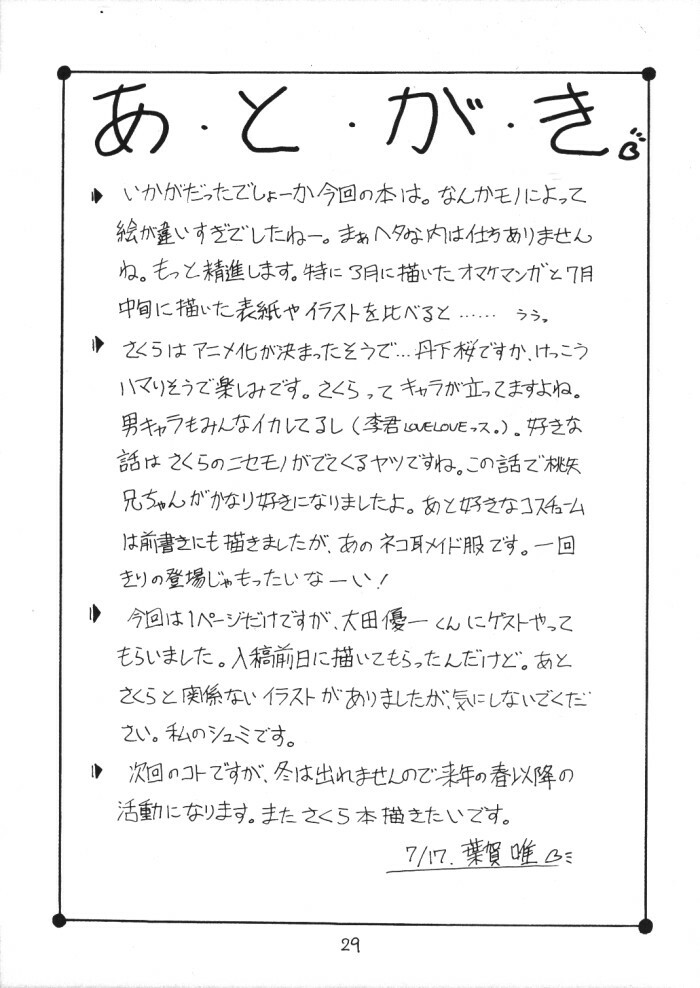 あ・と・が・き
いかがだったでしょーか今回の本は。なんかモノによって
絵が違いすぎでしたねー。まぁヘタな内は仕方ありません
ね。もっと精進します。特に3月に描いたオマケマンガと7月
中旬に描いた表紙やイラストを比べると…… うぅ。
さくらはアニメ化が決まったそうで…丹下桜ですか、けっこう
ハマりそうで楽しみです。さくらってキャラが立ってますよね。
男キャラもみんなイカしてるし(李君LOVELOVEっス。)。好きな
話はさくらのニセモノがでてくるヤツですね。この話で桃矢
兄ちゃんがかなり好きになりましたよ。あと好きなコスチューム
は前書きにも描きましたが、あのネコ耳メイド服です。一回
きりの登場じゃもったいなーい!
今回は1ページだけですが、太田優一くんにゲストやって
もらいました。入稿前日に描いてもらったんだけど。あと
さくらと関係ないイラストがありましたが、気にしないでくだ
さい。私のシュミです。
次回のコトですが、冬は出れませんので来年の春以降の
活動になります。またさくら本描きたいです。
7/17. 葉賀 唯
29